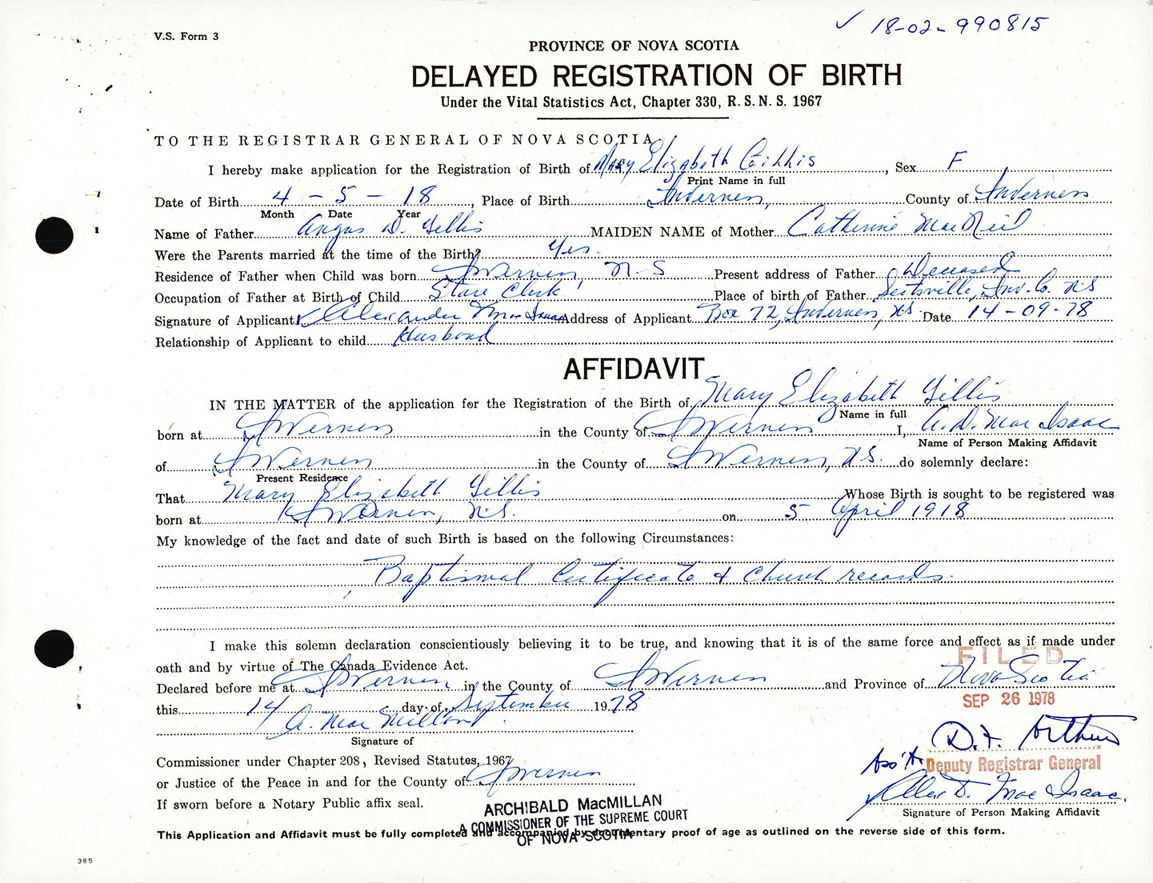 V.S. Form 3
✓ 18-02-990815
PROVINCE OF NOVA SCOTIA
DELAYED REGISTRATION OF BIRTH
Under the Vital Statistics Act, Chapter 330, R.S.N.S. 1967
TO THE REGISTRAR GENERAL OF NOVA SCOTIA
I hereby make application for the Registration of Birth of Mary Elizabeth Gillis, Sex F
Print Name in full
Date of Birth 4 - 5 - 18, Place of Birth Inverness, County of Inverness
Month Date Year
Name of Father Angus D. Gillis MAIDEN NAME of Mother Catherine MacNeil
Were the Parents married at the time of the Birth? Yes.
Residence of Father when Child was born Inverness, N.S Present address of Father Deceased
Occupation of Father at Birth of Child Store Clerk Place of birth of Father Scotsville, Inv. Co. N.S
Signature of Applicant Alexander MacIsaac Address of Applicant Box 72, Inverness, N.S. Date 14-09-78
Relationship of Applicant to child Husband
AFFIDAVIT
IN THE MATTER of the application for the Registration of the Birth of Mary Elizabeth Gillis
Name in full
born at Inverness in the County of Inverness I, A.D. MacIsaac
Name of Person Making Affidavit
of Inverness in the County of Inverness, N.S. do solemnly declare:
Present Residence
That Mary Elizabeth Gillis Whose Birth is sought to be registered was
born at Inverness, N.S. on 5 April 1918
My knowledge of the fact and date of such Birth is based on the following Circumstances:
Baptismal Certificate & Church records.
I make this solemn declaration conscientiously believing it to be true, and knowing that it is of the same force and effect as if made under
oath and by virtue of The Canada Evidence Act.
FILED
Declared before me at Inverness in the County of Inverness and Province of Nova Scotia
SEP 26 1978
this 14 day of September 1978
A. MacMillan
Signature of
D.F. Arthur
Commissioner under Chapter 208, Revised Statutes, 1967
Ass't. Deputy Registrar General
or Justice of the Peace in and for the County of Inverness
Alex D. MacIsaac.
If sworn before a Notary Public affix seal.
Signature of Person Making Affidavit
ARCHIBALD MacMILLAN
A COMMISSIONER OF THE SUPREME COURT
OF NOVA SCOTIA
This Application and Affidavit must be fully completed and accompanied by documentary proof of age as outlined on the reverse side of this form.
385